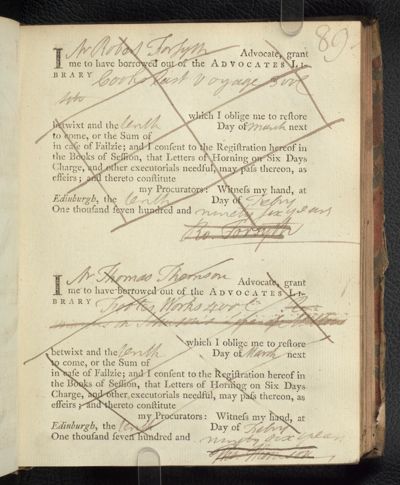 89
I Mr Robert Forsyth Advocate, grant
me to have borrowed out of the ADVOCATES LI-
BRARY Cooks last Voyage 3 vol
4to
which I oblige me to restore
betwixt and the tenth Day of March next
to come, or the Sum of
in case of Failzie; and I consent to the Registration hereof in
the Books of Session, that Letters of Horning on Six Days
Charge, and other executorials needful, may pass thereon, as
effeirs; and thereto constitute
my Procurators: Witness my hand, at
Edinburgh, the tenth Day of Febry
One thousand seven hundred and ninety six years
Ro. Forsyth
I Mr Thomas Thomson Advocate, grant
me to have borrowed out of the ADVOCATES LI-
BRARY Footes Works 4 vol
which I oblige me to restore
betwixt and the tenth Day of March next
to come, or the Sum of
in case of Failzie; and I consent to the Registration hereof in
the Books of Session, that Letters of Horning on Six Days
Charge, and other executorials needful, may pass thereon, as
effeirs; and thereto constitute
my Procurators: Witness my hand, at
Edinburgh, the tenth Day of Febry
One thousand seven hundred and ninety six years
Tho Thomson